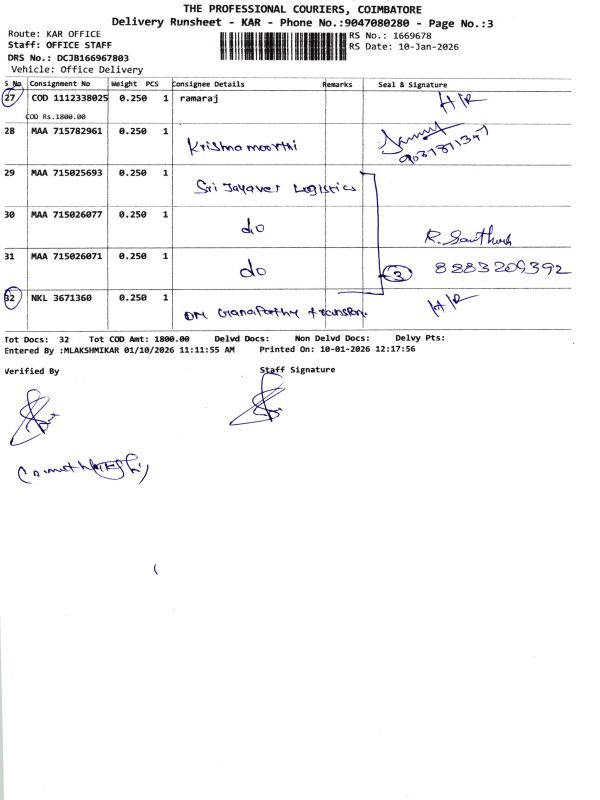 THE PROFESSIONAL COURIERS, COIMBATORE
Delivery Runsheet - KAR - Phone No.:9047080280 - Page No.:3
Route: KAR OFFICE
RS No.: 1669678
Staff: OFFICE STAFF
RS Date: 10-Jan-2026
DRS No.: DCJB166967803
Vehicle: Office Delivery
S No Consignment No Weight PCS Consignee Details Remarks Seal & Signature
27 COD 1112338025 0.250 1 ramaraj H/R
COD Rs.1800.00
28 MAA 715782961 0.250 1 Krishna moorthi
29 MAA 715025693 0.250 1 Sri Jayaver Logistics
30 MAA 715026077 0.250 1 do R. Santhosh
31 MAA 715026071 0.250 1 do 3 8883209392
32 NKL 3671360 0.250 1 Om Ganapathy transpo. H/R
Tot Docs: 32 Tot COD Amt: 1800.00 Delvd Docs: Non Delvd Docs: Delvy Pts:
Entered By :MLAKSHMIKAR 01/10/2026 11:11:55 AM Printed On: 10-01-2026 12:17:56
Verified By Staff Signature